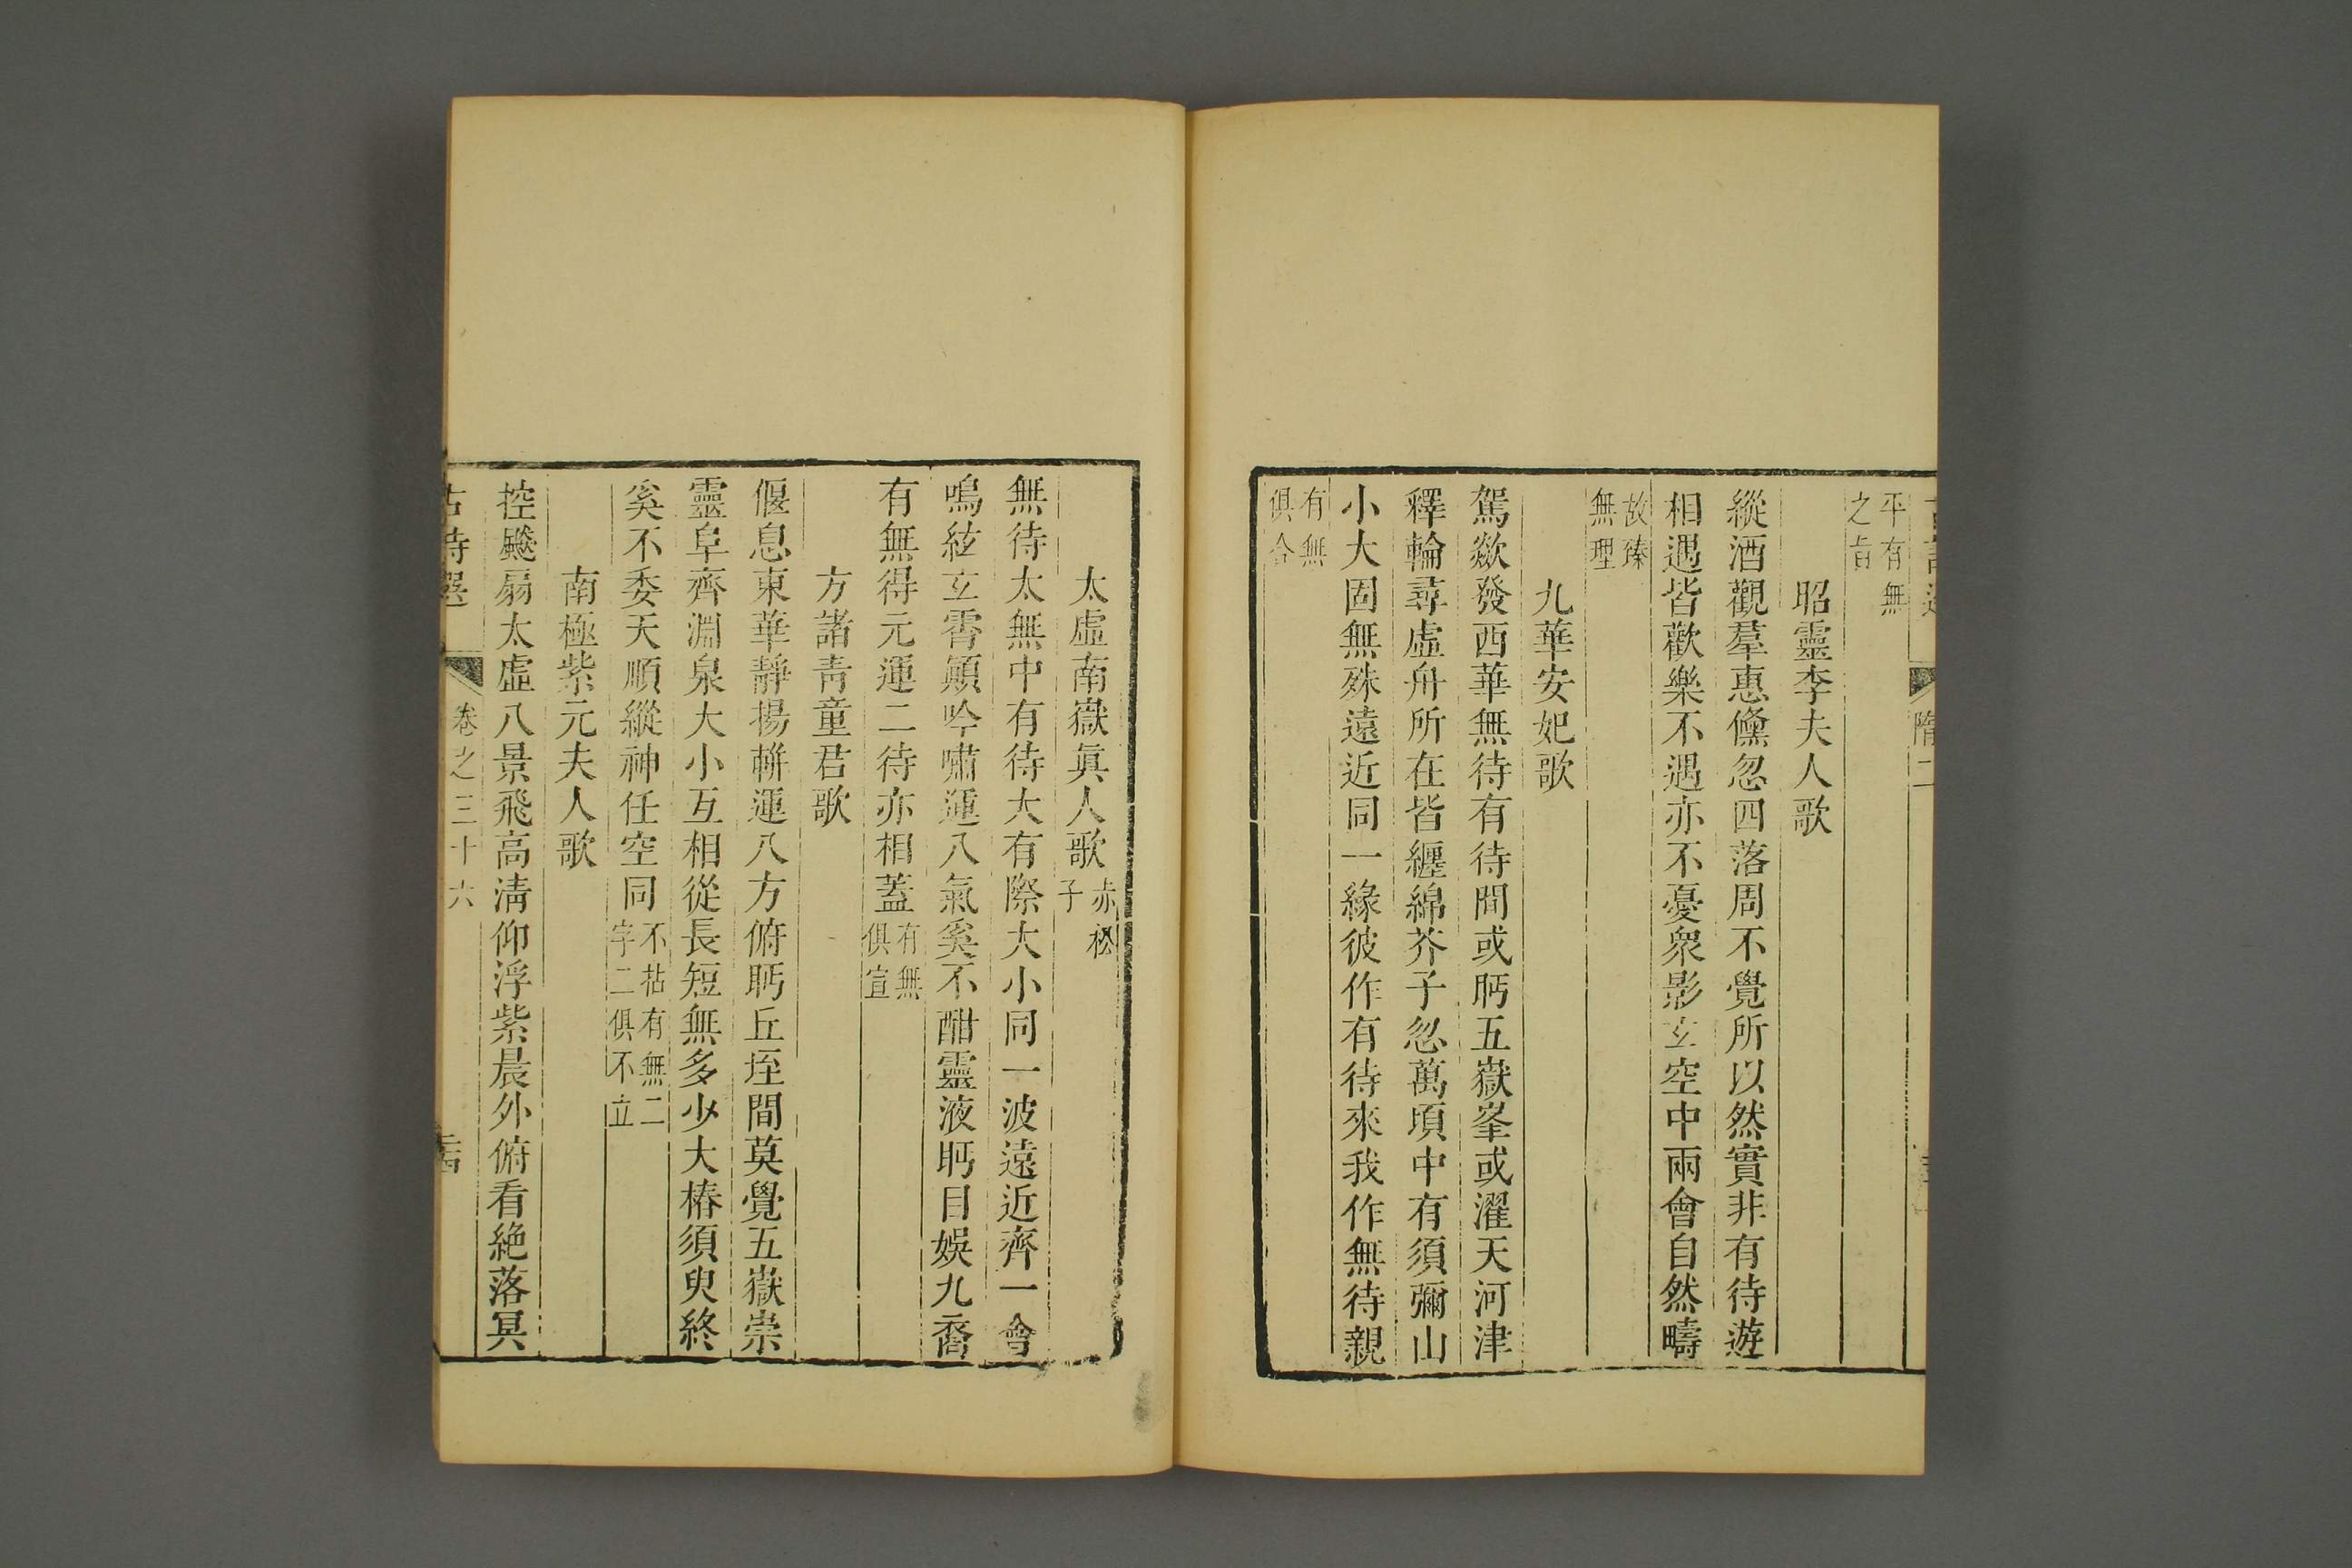 隋二
平有無
之旨
昭靈李夫人歌
縱酒觀羣惠儵忽四落周不覺所以然實非有待遊
相遇皆歡樂不遇亦不憂衆影玄空中兩會自然疇
故臻
無理
九華安妃歌
駕欻發西華無待有待間或眄五嶽峯或濯天河津
釋輪尋虛舟所在皆纏綿芥子忽萬頃中有須彌山
小大固無殊遠近同一緣彼作有待來我作無待親
有無
俱合
太虛南嶽眞人歌赤松
子
無待太無中有待太有際大小同一波遠近齊一會
鳴絃玄霄顚吟嘯運八氣奚不酣靈液眄目娛九裔
有無得元運二待亦相蓋有無
俱宣
方諸靑童君歌
偃息東華靜揚軿運八方俯眄丘垤間莫覺五嶽崇
靈阜齊淵泉大小互相從長短無多少大椿須臾終
奚不委天順縱神任空同不拈有無二
字二俱不立
南極紫元夫人歌
控飈扇太虛八景飛高淸仰浮紫晨外俯看絶落冥
古詩選
卷之三十六